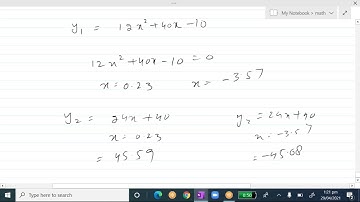 My Notebook > math
y₁ = 12x²+40x-10
12x²+40x-10 = 0
x = 0.23 x = -3.57
y₂ = 24x+40 y₂ = 24x+40
x = 0.23 x = -3.57
= 45.59 = -45.68
Type here to search
1:21 pm
29/04/2021